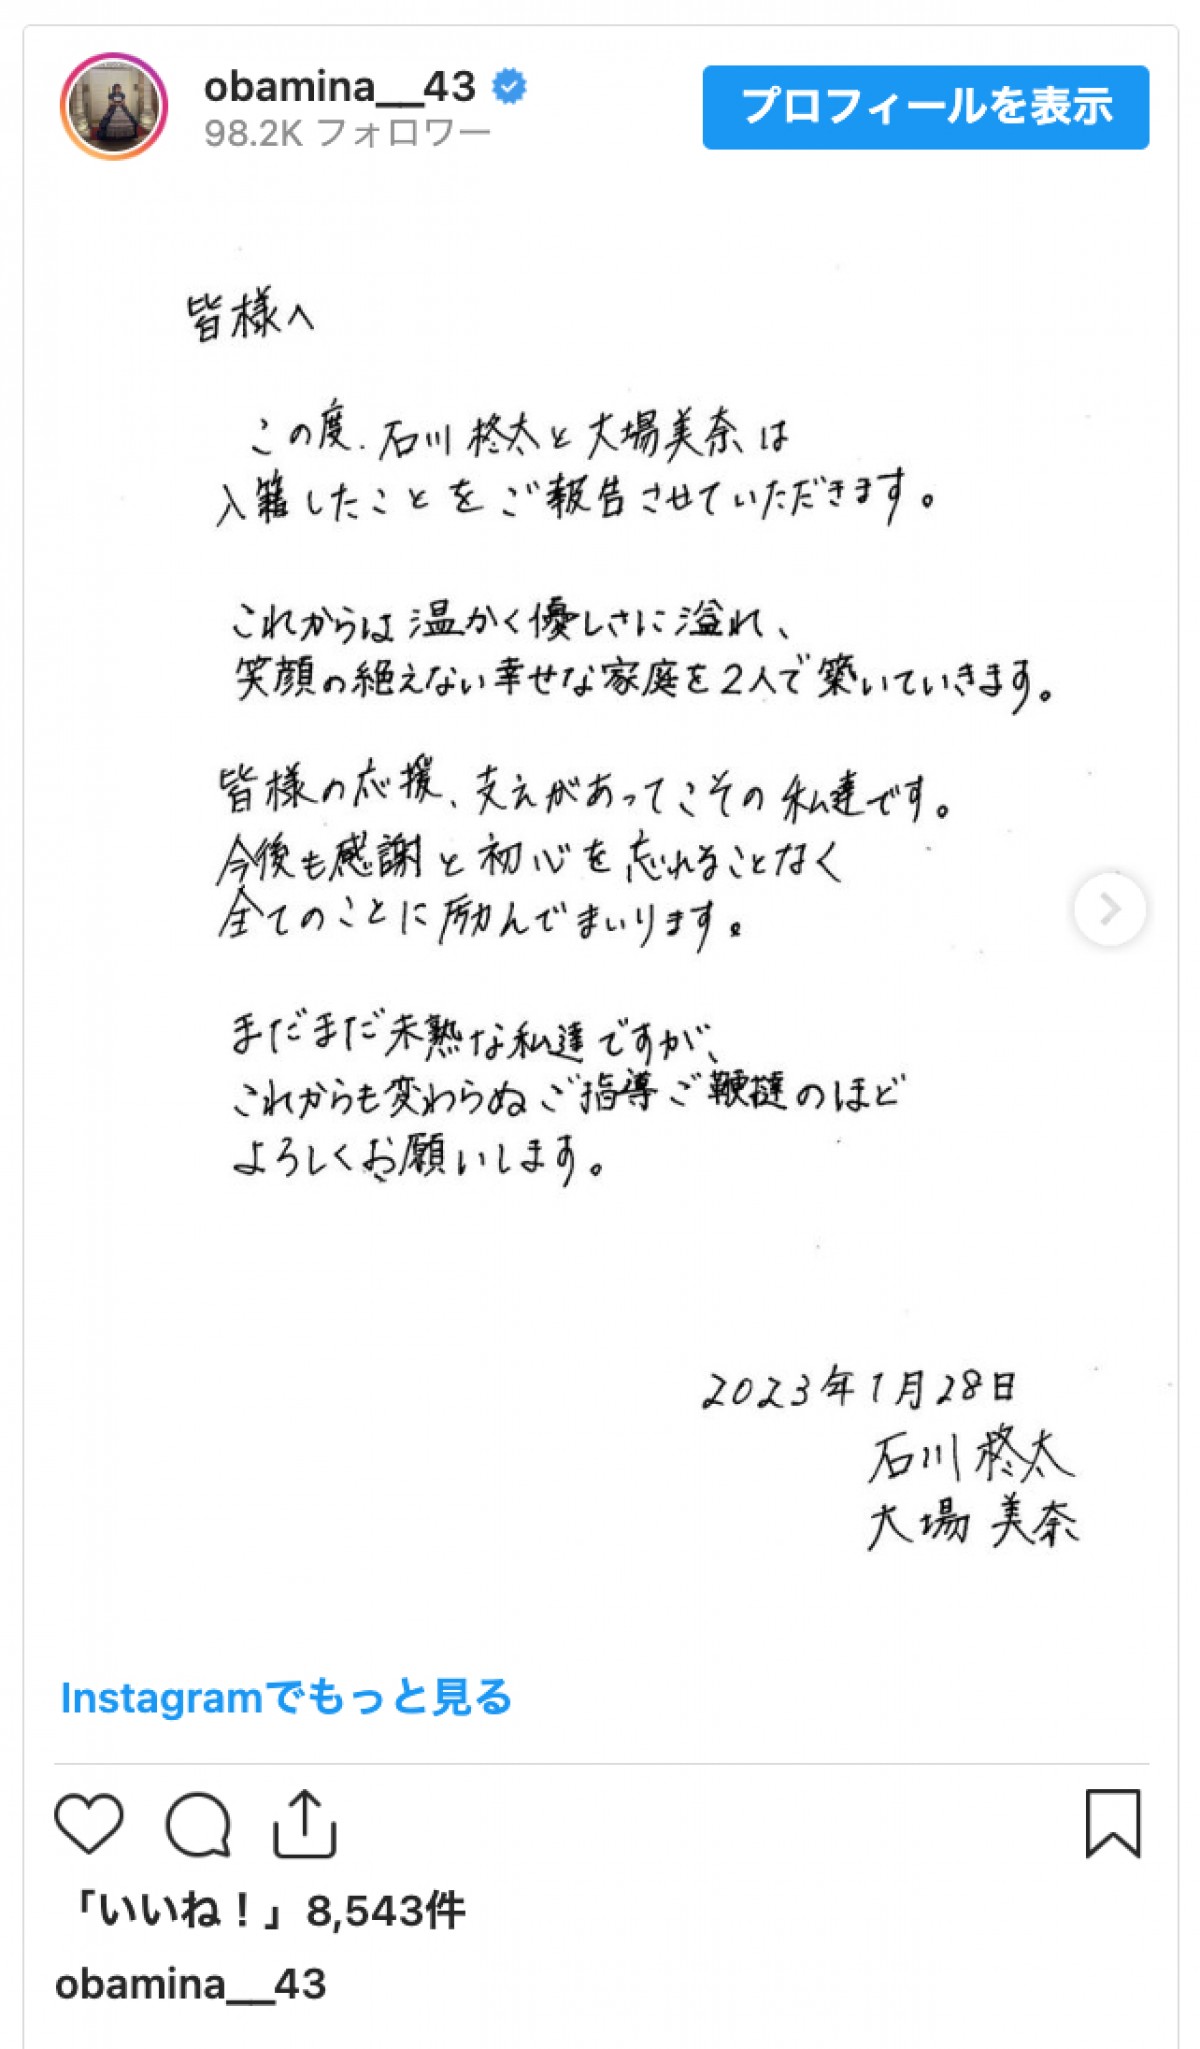 obamina__43
98.2K フォロワー
プロフィールを表示
皆様へ
この度、石川柊太と大場美奈は
入籍したことをご報告させていただきます。
これからは温かく優しさに溢れ、
笑顔の絶えない幸せな家庭を2人で築いていきます。
皆様の応援、支えがあってこその私達です。
今後も感謝と初心を忘れることなく
全てのことに励んでまいります。
まだまだ未熟な私達ですが、
これからも変わらぬご指導ご鞭撻のほど
よろしくお願いします。
2023年1月28日
石川 柊太
大場 美奈
Instagramでもっと見る
「いいね！」8,543件
obamina__43